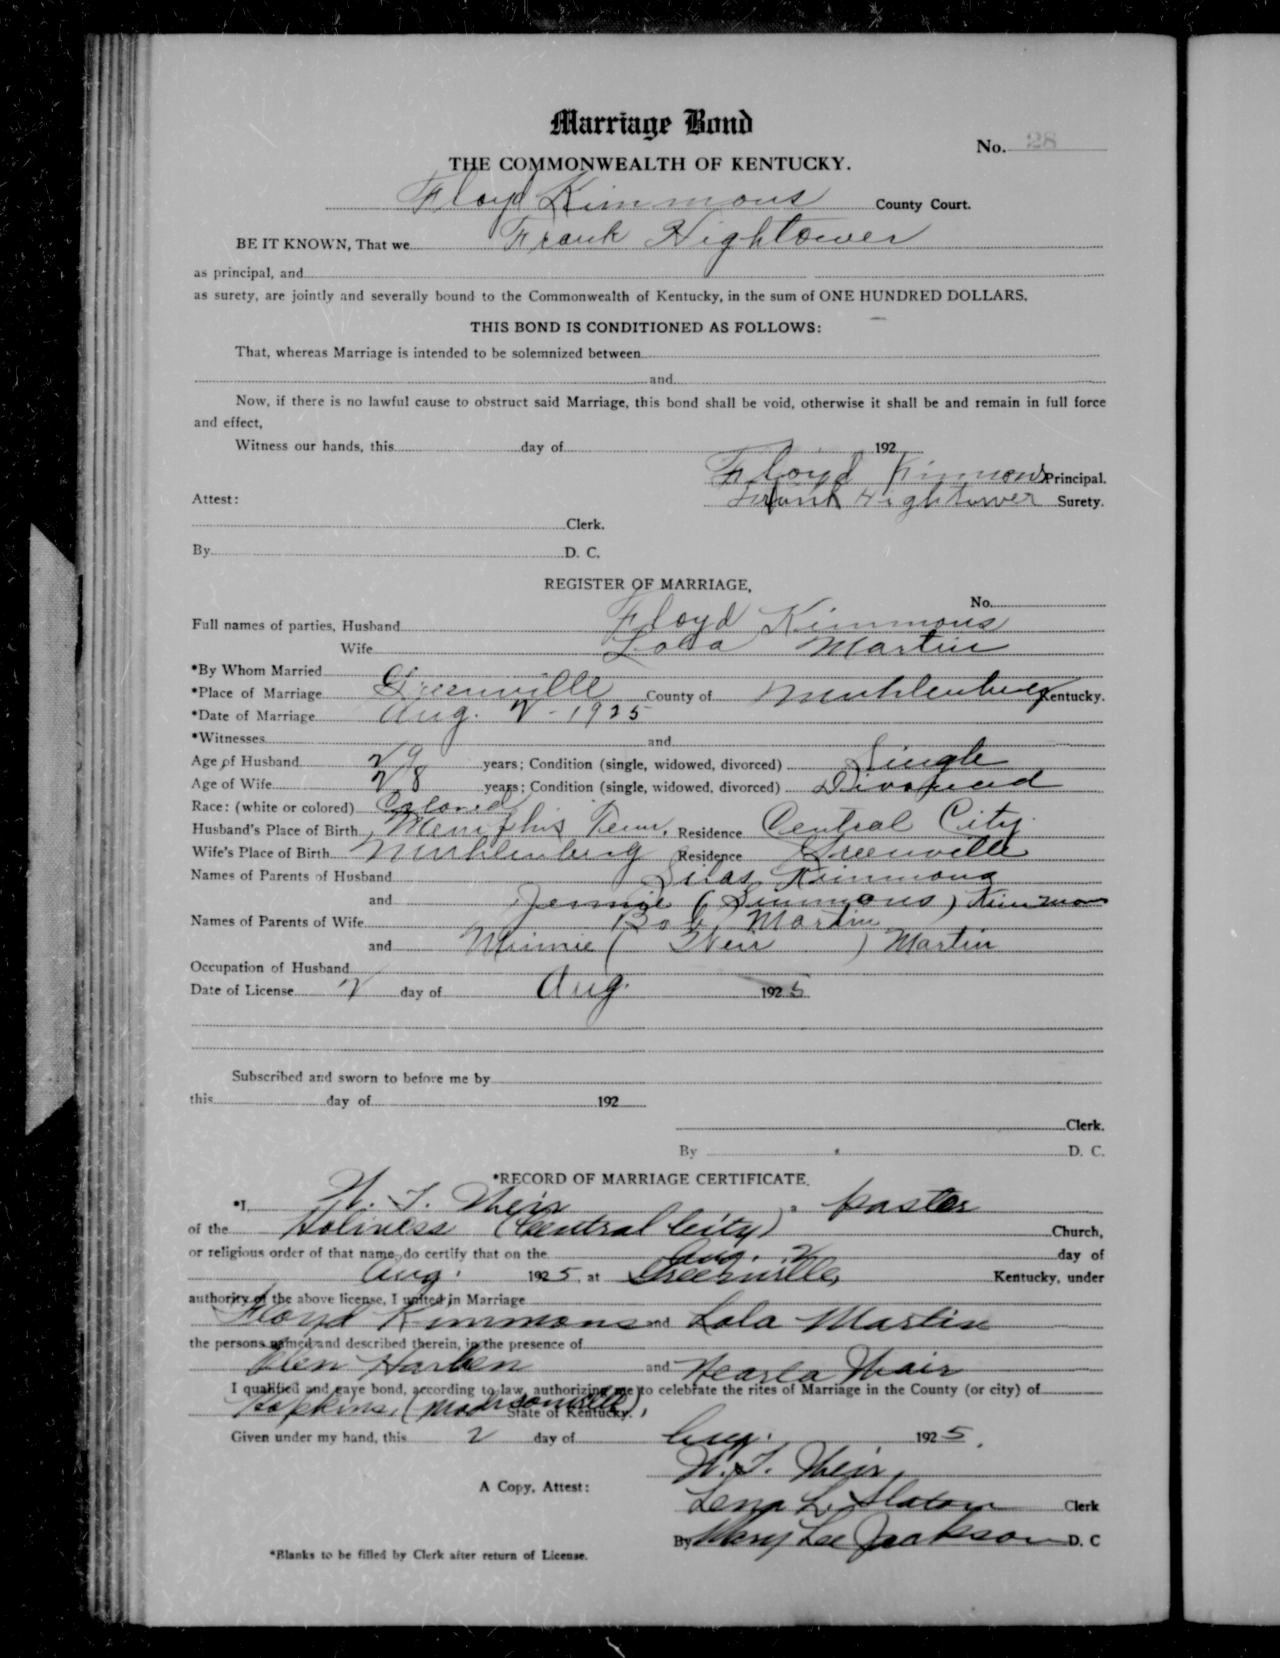 Marriage Bond
No. 28
THE COMMONWEALTH OF KENTUCKY.
Floyd Kimmons County Court.
BE IT KNOWN, That we Frank Hightower
as principal, and
as surety, are jointly and severally bound to the Commonwealth of Kentucky, in the sum of ONE HUNDRED DOLLARS.
THIS BOND IS CONDITIONED AS FOLLOWS:
That, whereas Marriage is intended to be solemnized between
and
Now, if there is no lawful cause to obstruct said Marriage, this bond shall be void, otherwise it shall be and remain in full force
and effect,
Witness our hands, this day of 192
Floyd Kimmons Principal.
Attest: Frank Hightower Surety.
Clerk.
By D. C.
REGISTER OF MARRIAGE,
No.
Full names of parties, Husband Floyd Kimmons
Wife Lola Martin
*By Whom Married
*Place of Marriage Greenville County of Muhlenberg Kentucky.
*Date of Marriage Aug. 2 - 1925
*Witnesses and
Age of Husband 29 years; Condition (single, widowed, divorced) Single
Age of Wife 28 years; Condition (single, widowed, divorced) Divorced
Race: (white or colored) Colored
Husband's Place of Birth Memphis Tenn. Residence Central City
Wife's Place of Birth Muhlenberg Residence Greenville
Names of Parents of Husband Silas Kimmons
and Jennie (Simmons) Kimmons
Names of Parents of Wife Bob Martin
and Minnie ( Weir ) Martin
Occupation of Husband
Date of License 2 day of Aug. 1925
Subscribed and sworn to before me by
this day of 192
Clerk.
By D. C.
*RECORD OF MARRIAGE CERTIFICATE.
*I, W. T. Weir, paster
of the Holiness (Central City) Church,
or religious order of that name, do certify that on the Aug. 2 day of
Aug. 1925, at Greenville, Kentucky, under
authority of the above license, I united in Marriage
Floyd Kimmons and Lola Martin
the persons named and described therein, in the presence of
Harben and Weair
I qualified and gave bond, according to law, authorizing me to celebrate the rites of Marriage in the County (or city) of
Hopkins, (Madisonville), State of Kentucky.
Given under my hand, this 2 day of Aug. 1925.
W. T. Weir,
A Copy, Attest:
Lena L. Slaton Clerk
By Mary Lee Jackson D. C
*Blanks to be filled by Clerk after return of License.